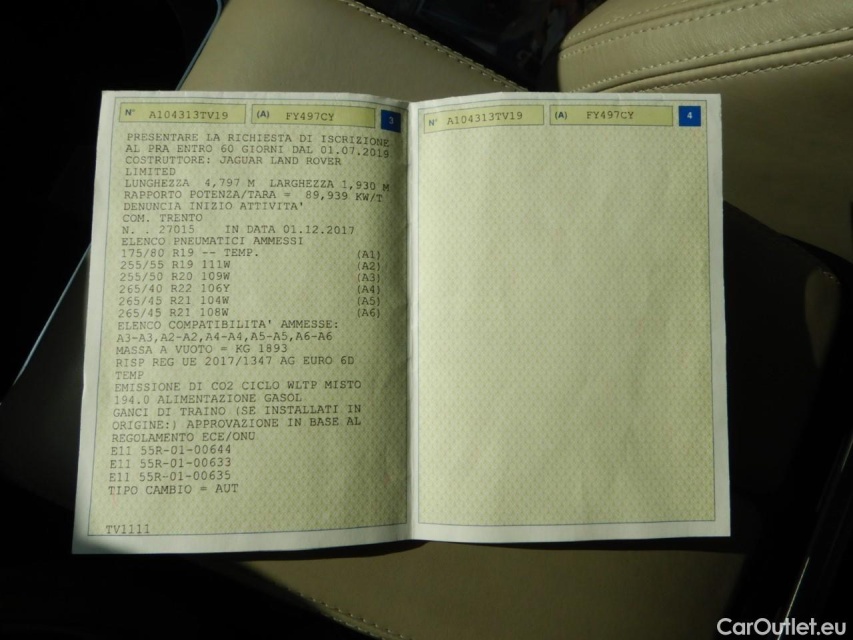 N° A104313TV19 (A) FY497CY 3
PRESENTARE LA RICHIESTA DI ISCRIZIONE
AL PRA ENTRO 60 GIORNI DAL 01.07.2019
COSTRUTTORE: JAGUAR LAND ROVER
LIMITED
LUNGHEZZA 4,797 M LARGHEZZA 1,930 M
RAPPORTO POTENZA/TARA = 89,939 KW/T
DENUNCIA INIZIO ATTIVITA'
COM. TRENTO
N. . 27015 IN DATA 01.12.2017
ELENCO PNEUMATICI AMMESSI
175/80 R19 -- TEMP. (A1)
255/55 R19 111W (A2)
255/50 R20 109W (A3)
265/40 R22 106Y (A4)
265/45 R21 104W (A5)
265/45 R21 108W (A6)
ELENCO COMPATIBILITA' AMMESSE:
A3-A3,A2-A2,A4-A4,A5-A5,A6-A6
MASSA A VUOTO = KG 1893
RISP REG UE 2017/1347 AG EURO 6D
TEMP
EMISSIONE DI CO2 CICLO WLTP MISTO
194.0 ALIMENTAZIONE GASOL
GANCI DI TRAINO (SE INSTALLATI IN
ORIGINE:) APPROVAZIONE IN BASE AL
REGOLAMENTO ECE/ONU
E11 55R-01-00644
E11 55R-01-00633
E11 55R-01-00635
TIPO CAMBIO = AUT
TV1111
N° A104313TV19 (A) FY497CY 4
CarOutlet.eu